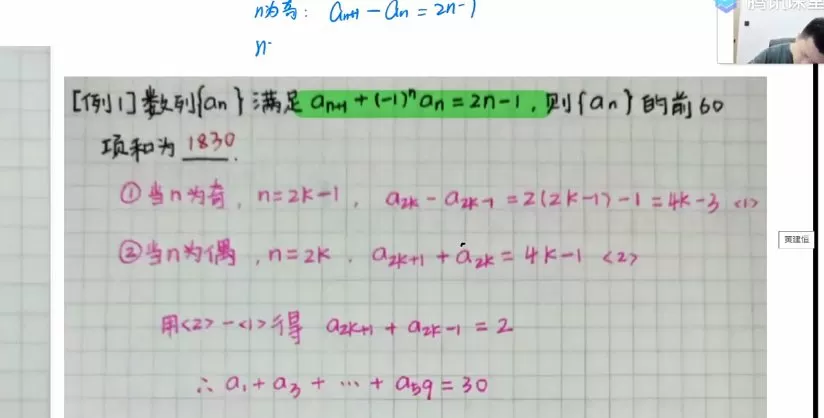 n为奇: aₙ₊₁ - aₙ = 2n-1
腾讯课堂
n
[例1] 数列{aₙ}满足 aₙ₊₁ + (-1)ⁿaₙ = 2n-1, 则{aₙ}的前60
项和为 1830.
①当n为奇, n=2k-1, a₂ₖ - a₂ₖ₋₁ = 2(2k-1)-1 = 4k-3 <1>
黄建恒
②当n为偶, n=2k. a₂ₖ₊₁ + a₂ₖ = 4k-1 <2>
用<2>-<1>得 a₂ₖ₊₁ + a₂ₖ₋₁ = 2
∴ a₁ + a₃ + ⋯ + a₅₉ = 30